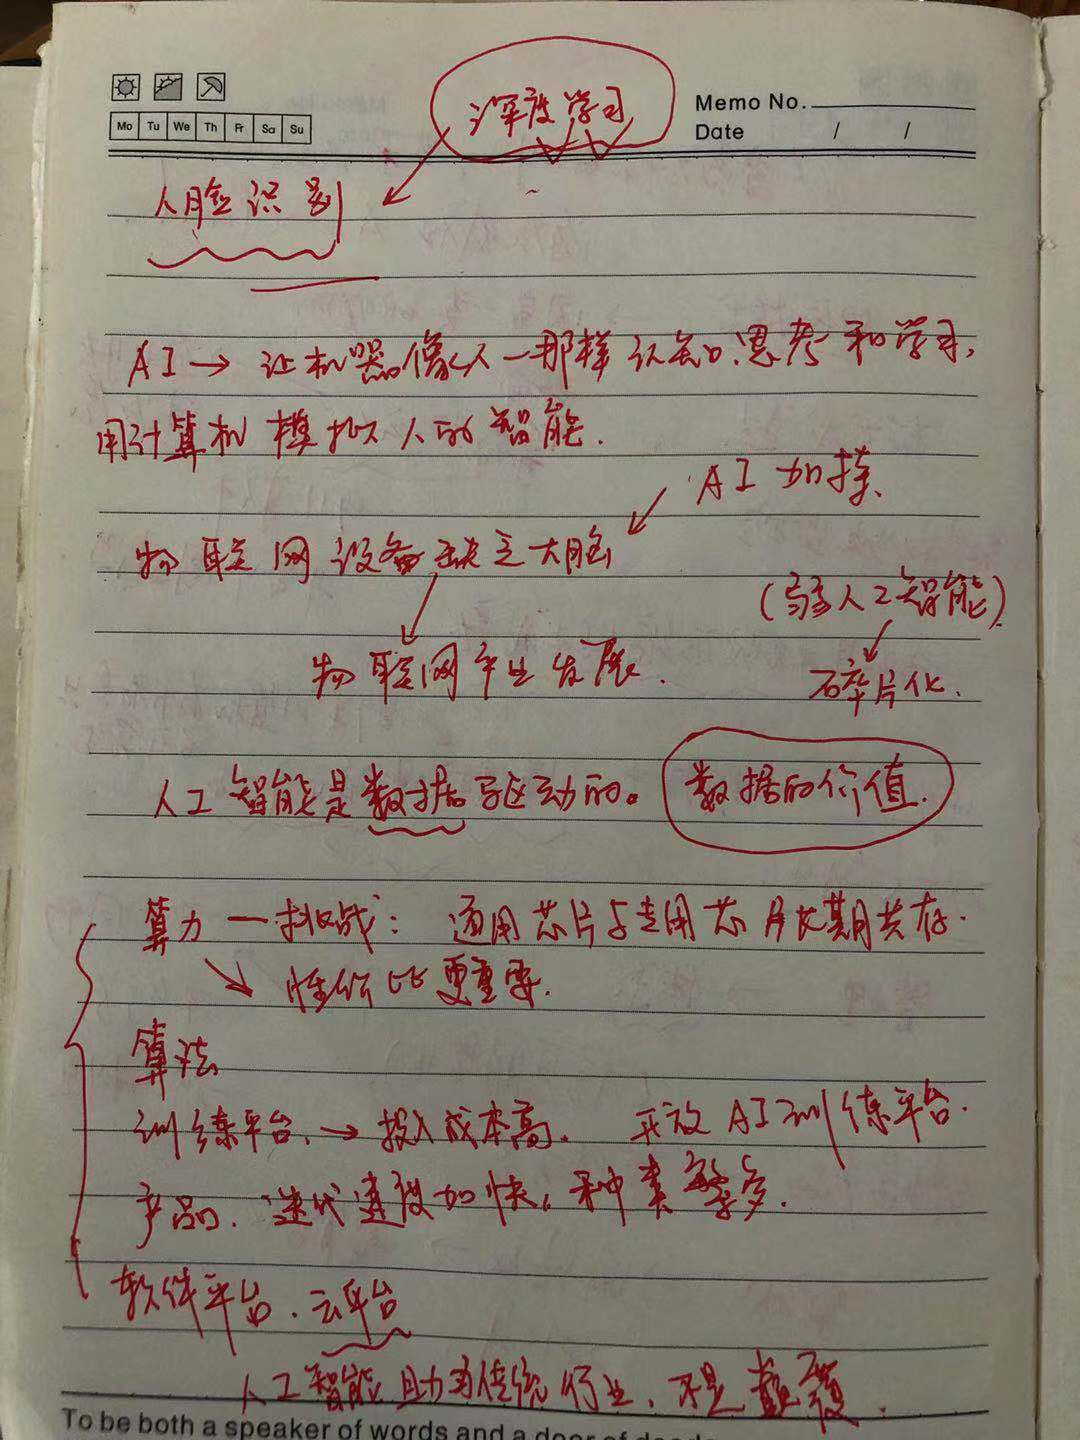 深度学习
Memo No.
Mo Tu We Th Fr Sa Su
Date / /
人脸识别
AI → 让机器像人一那样认知、思考和学习,
用计算机模拟人的智能.
AI加持、
物联网设备缺乏大脑
(弱人工智能)
物联网产业发展.
碎片化.
人工智能是数据驱动的。 数据的价值.
算力 — 挑战: 通用芯片与专用芯片长期共存.
性价比更重要.
算法
训练平台、→ 投入成本高. 开放AI训练平台.
产品、迭代速度加快, 种类繁多.
软件平台、云平台
人工智能助力传统行业、不是颠覆.
To be both a speaker of words and a doer of deeds